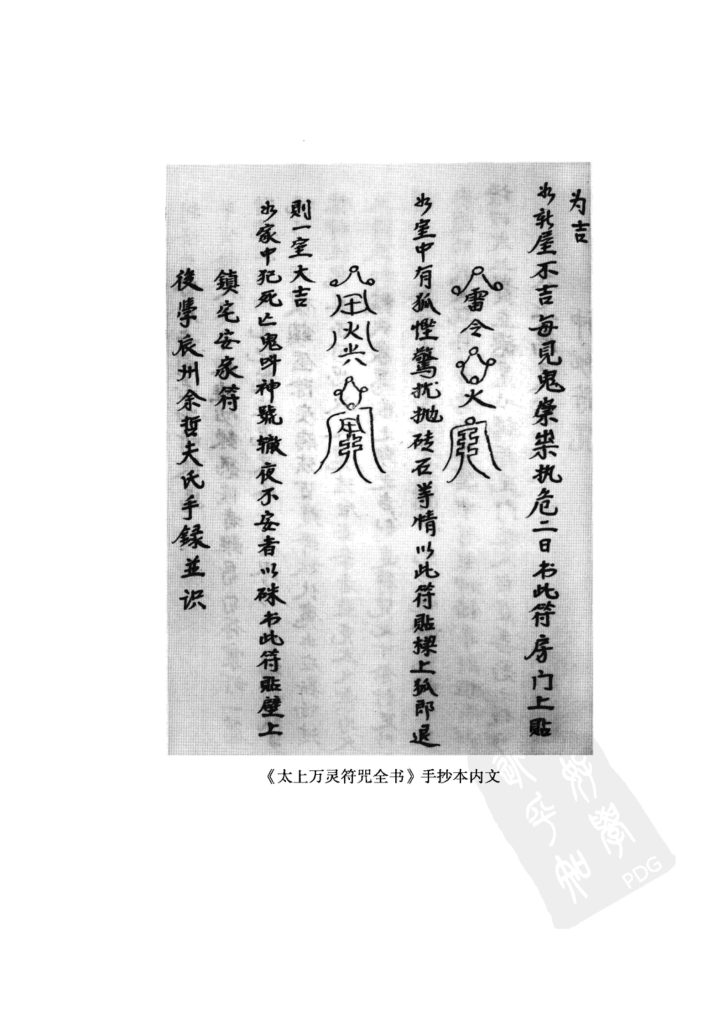 为吉
如新屋不吉每見鬼祟安执危二日书此符房门上貼
雷令火
如室中有狐怪驚扰抛砖石等情以此符貼樑上狐即退
則一室大吉
如家中犯死亡鬼呌神號辙夜不安者以硃书此符貼壁上
鎮宅安家符
後學辰州余哲夫氏手録並识
《太上万灵符咒全书》手抄本内文
PDG